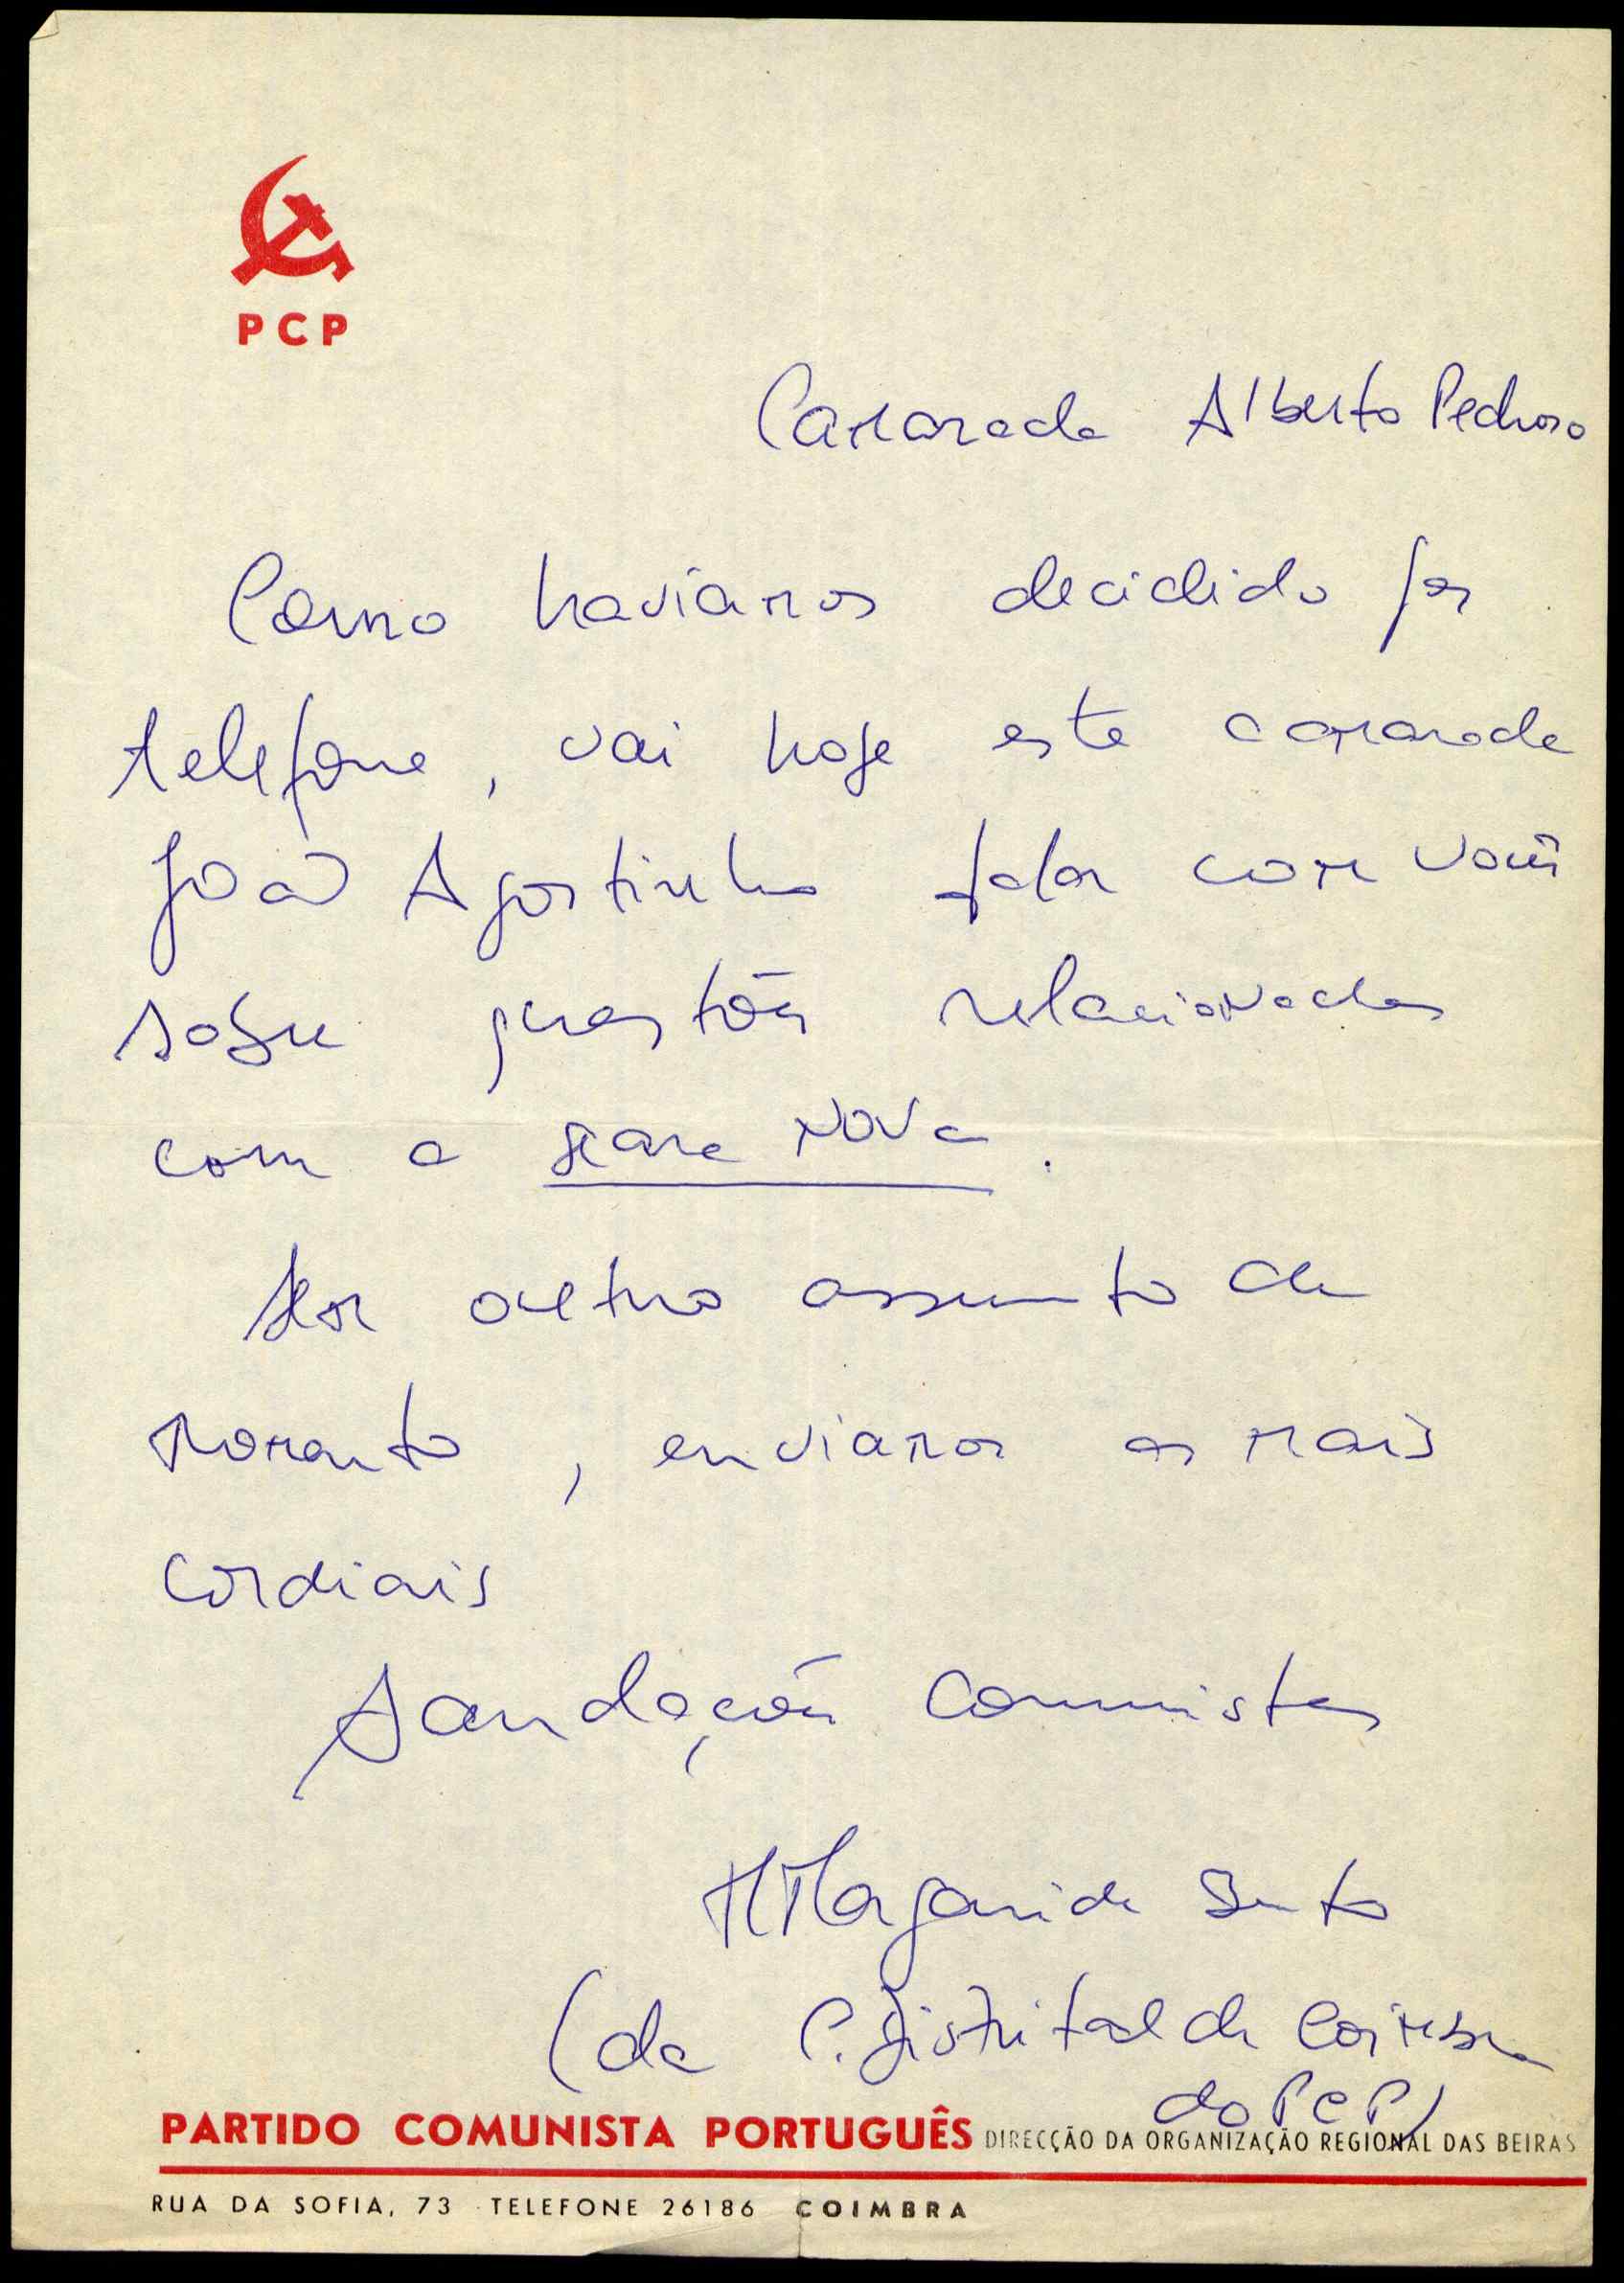 PCP
Camarada Alberto Pedroso
Como havíamos decidido por
telefone, vai hoje este camarada
João Agostinho falar com você
sobre questões relacionadas
com a Seara Nova.
outro assunto de
momento, enviamos as mais
cordiais
Saudações Comunistas
Margarida
(da C. Distrital de Coimbra
do PCP)
PARTIDO COMUNISTA PORTUGUÊS DIRECÇÃO DA ORGANIZAÇÃO REGIONAL DAS BEIRAS
RUA DA SOFIA, 73 TELEFONE 26186 COIMBRA